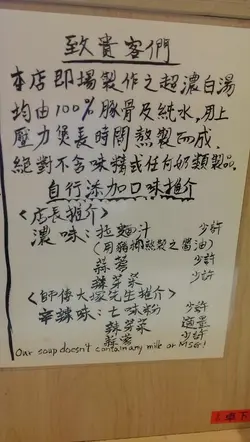 致貴客們
本店即場製作之超濃白湯
均由100%豚骨及純水,用上
壓力煲長時間熬製而成.
絕對不含味精或任何奶類製品.
自行添加口味推介
<店長推介>
濃 味:拉麵汁 少許
蒜蓉 少許
辣芽菜 少許
<師傅大塚先生推介>
辛辣味:七味粉 少許
辣芽菜 適量
蒜蓉 少許
Our soup doesn't contain any milk or MSG!